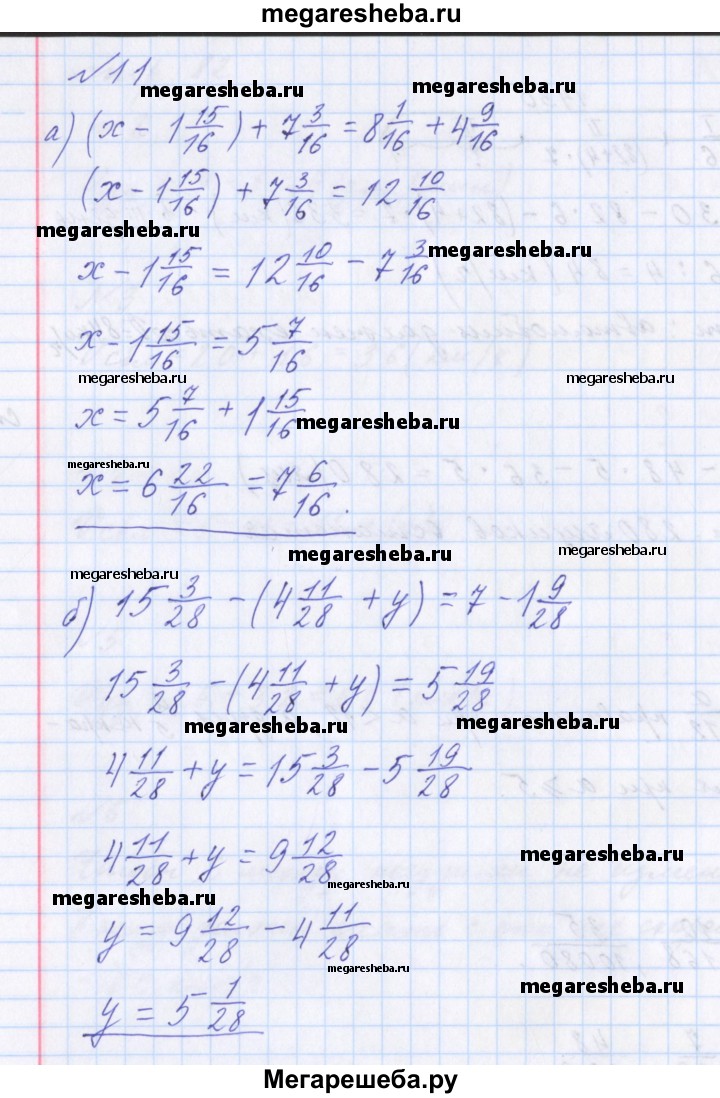 megaresheba.ru
№11
megaresheba.ru megaresheba.ru
а) (x - 1 15/16) + 7 3/16 = 8 1/16 + 4 9/16
(x - 1 15/16) + 7 3/16 = 12 10/16
megaresheba.ru megaresheba.ru
x - 1 15/16 = 12 10/16 - 7 3/16
x - 1 15/16 = 5 7/16
megaresheba.ru megaresheba.ru
x = 5 7/16 + 1 15/16
megaresheba.ru
megaresheba.ru
x = 6 22/16 = 7 6/16.
megaresheba.ru megaresheba.ru
megaresheba.ru
б) 15 3/28 - (4 11/28 + y) = 7 - 1 9/28
15 3/28 - (4 11/28 + y) = 5 19/28
megaresheba.ru megaresheba.ru
4 11/28 + y = 15 3/28 - 5 19/28
4 11/28 + y = 9 12/28
megaresheba.ru
megaresheba.ru megaresheba.ru
y = 9 12/28 - 4 11/28
megaresheba.ru megaresheba.ru
y = 5 1/28
Мегарешеба.ру